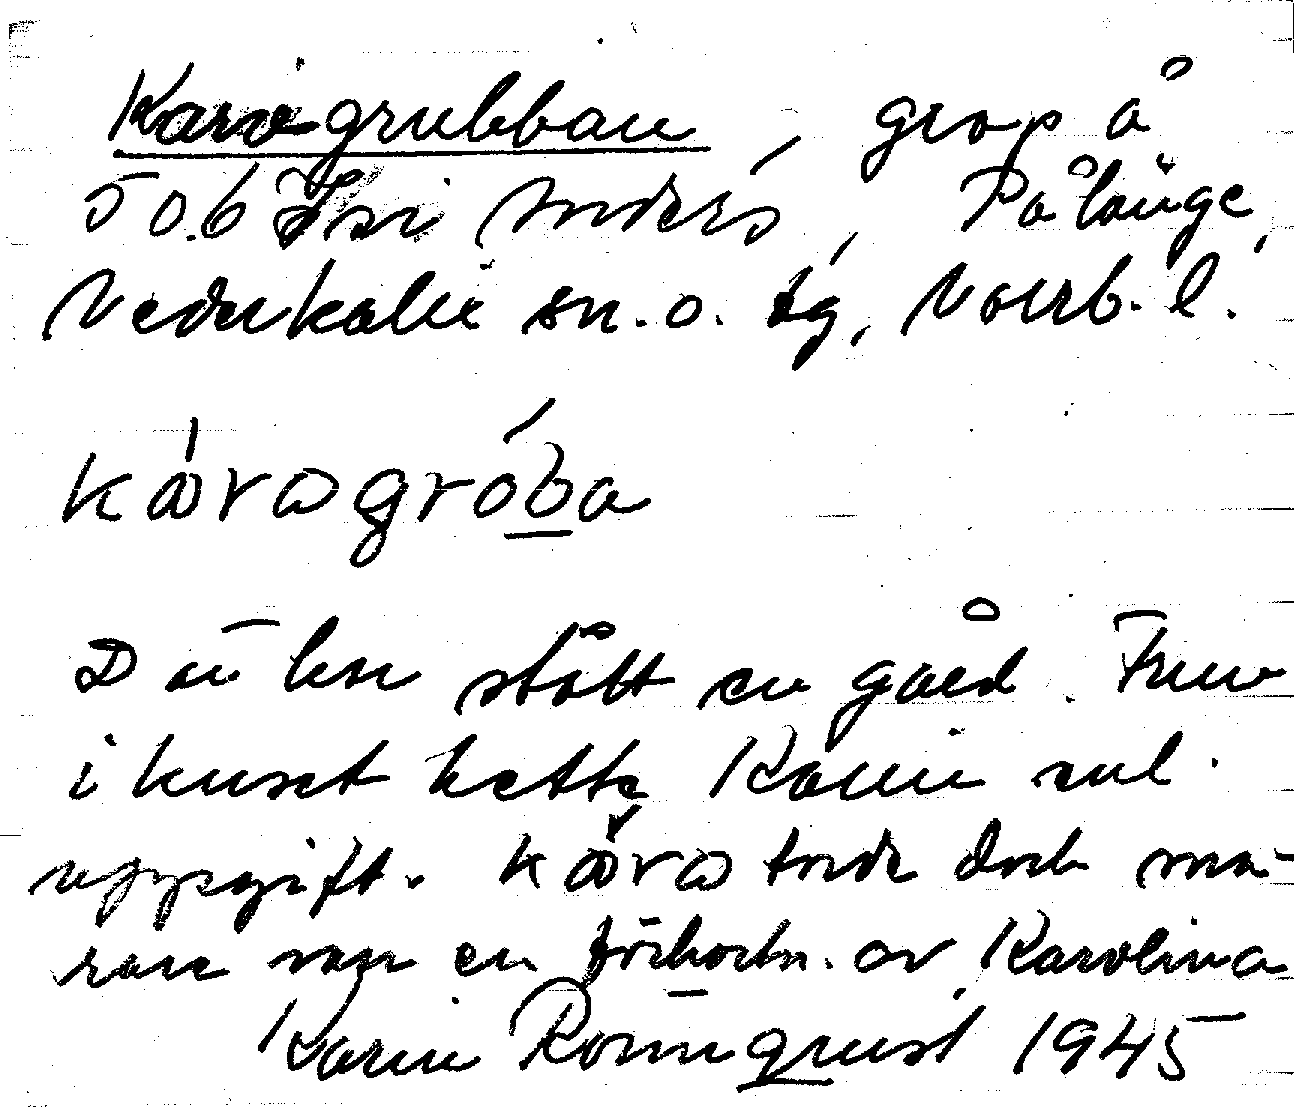 Karigrubban, grop å
5 06 Isi Anders, Pålänge,
Nederkalix sn. o. tg, Norrb. l.
kåragróba
Där har stått en gård. Frun
i huset hette Karin enl.
uppgift. kåra torde dock sna-
rare vara en förkortn. av Karolina
Karin Rönnqvist 1945